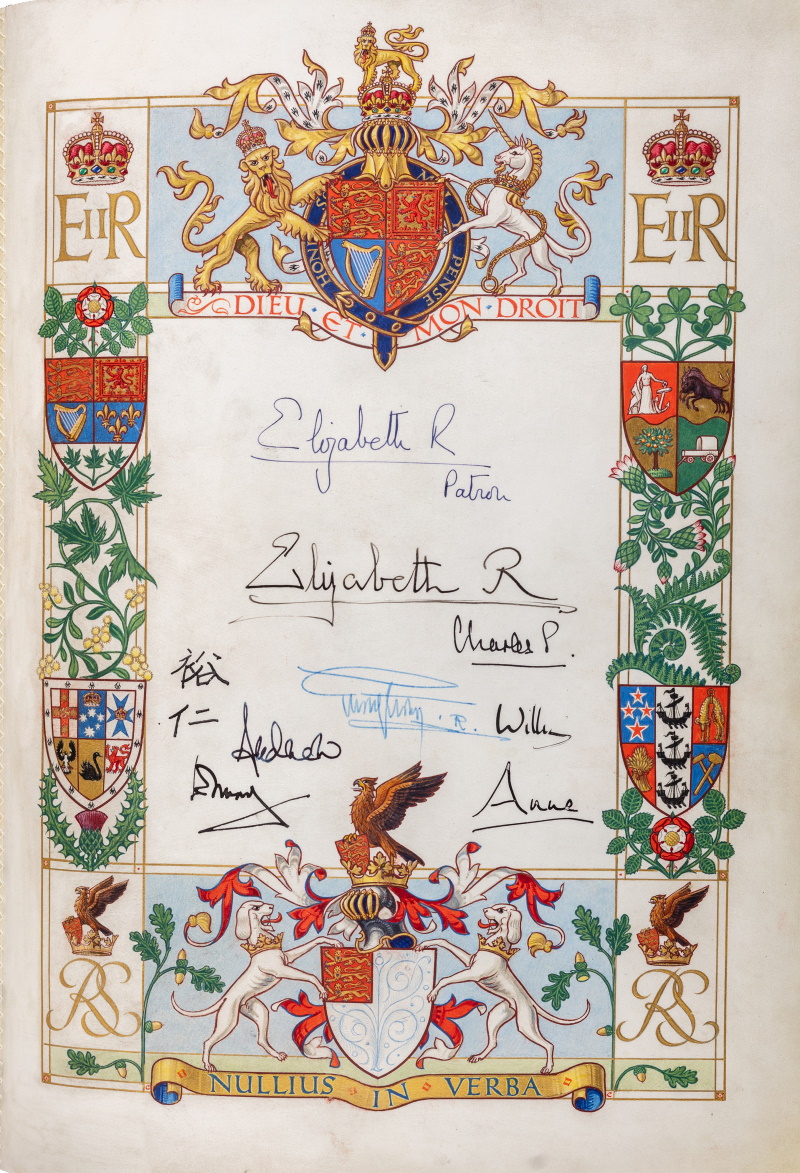 EIIR
EIIR
HONI
PENSE
DIEU · ET · MON · DROIT
Elizabeth R
Patron
Elizabeth R
Charles P.
裕
仁
R.
William
Anne
RS
RS
NULLIUS IN VERBA